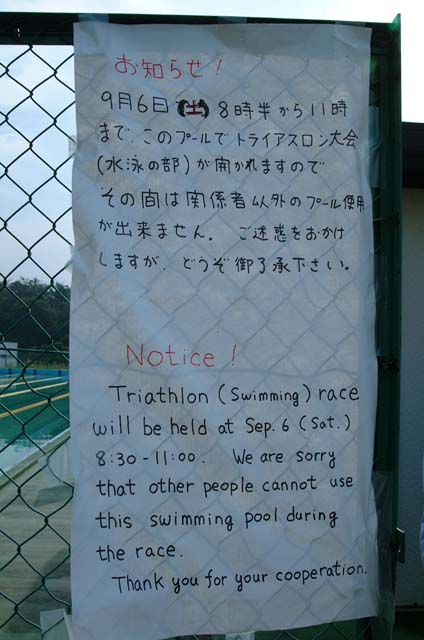 お知らせ!
9月6日(土)8時半から11時
まで、このプールでトライアスロン大会
(水泳の部)が開かれますので
その間は関係者以外のプール使用
が出来ません。ご迷惑をおかけ
しますが、どうぞ御了承下さい。
Notice!
Triathlon (Swimming) race
will be held at Sep. 6 (Sat.)
8:30-11:00. We are sorry
that other people cannot use
this swimming pool during
the race.
Thank you for your cooperation.